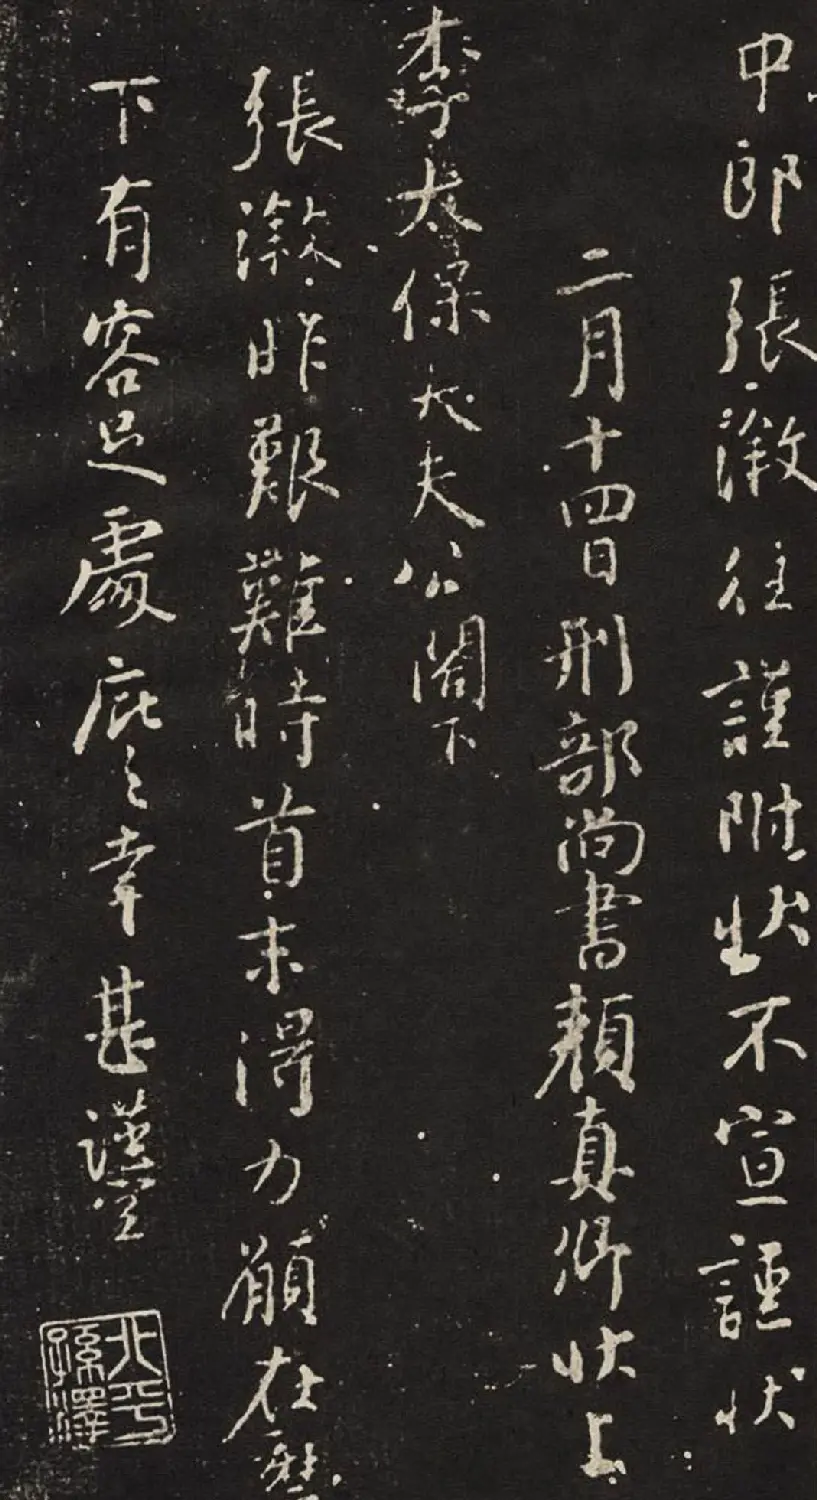 中郎張澂往謹附狀不宣謹狀
二月十四日刑部尚書顏真卿狀上
李太保大夫公閤下
張澂昨艱難時首末得力願在麾
下有容足處庇之幸甚謹空
北平孫澤